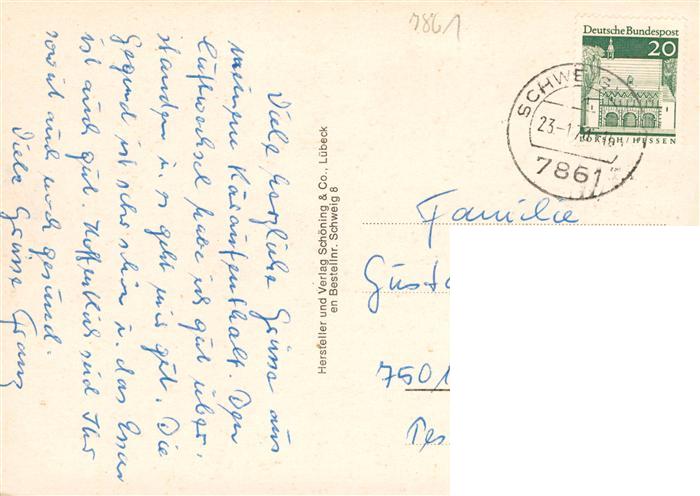 7861
Deutsche Bundespost
20
LORSCH/HESSEN
SCHWEIG
23.-1.
7861
Viele herzliche Grüsse aus
meinem Kuraufenthalt. Den
Luftwechsel habe ich gut über-
standen u. es geht mir gut. Die
Gegend ist sehr schön u. das Essen
ist auch gut. Hoffentlich seid Ihr
soweit auch noch gesund.
Viele Grüsse Franz
Hersteller und Verlag Schöning & Co., Lübeck
en Bestellnr. Schweig 8
Familie
Gusta
7501